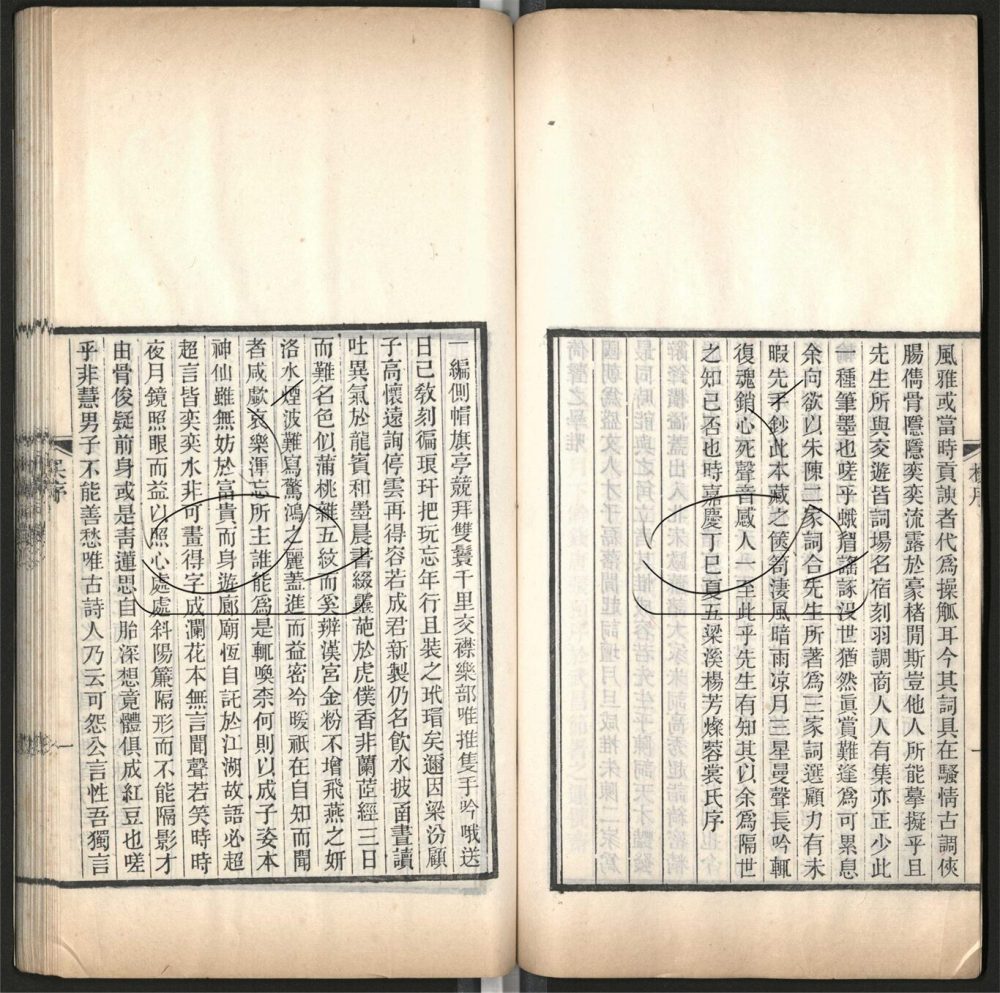 風雅或當時貢諛者代爲操觚耳今其詞具在騷情古調俠
腸儁骨隱隱奕奕流露於豪楮閒斯豈他人所能摹擬乎且
先生所與交遊皆詞場名宿刻羽調商人人有集亦正少此
一種筆墨也嗟乎蛾眉謠諑沒世猶然眞賞難逢爲可累息
余向欲以朱陳二家詞合先生所著爲三家詞選顧力有未
暇先手鈔此本藏之篋笥淒風暗雨凉月三星曼聲長吟輒
復魂銷心死聲音感人一至此乎先生有知其以余爲隔世
之知己否也時嘉慶丁巳夏五梁溪楊芳燦蓉裳氏序
楊序
一
一編側帽旗亭競拜雙鬟千里交襟樂部唯推隻手吟哦送
日已教刻徧琅玕把玩忘年行且裝之玳瑁矣邇因梁汾顧
子高懷遠詢停雲再得容若成君新製仍名飲水披函晝讀
吐異氣於龍賓和墨晨書綴靈葩於虎僕香非蘭茝經三日
而難名色似蒲桃雜五紋而奚辨漢宮金粉不增飛燕之妍
洛水煙波難寫驚鴻之麗蓋進而益密冷暖祇在自知而聞
者咸歔哀樂渾忘所主誰能爲是輒喚柰何則以成子姿本
神仙雖無妨於富貴而身遊廊廟恆自託於江湖故語必超
超言皆奕奕水非可畫得字成瀾花本無言聞聲若笑時時
夜月鏡照眼而益以照心處處斜陽簾隔形而不能隔影才
由骨俊疑前身或是靑蓮思自胎深想竟體俱成紅豆也嗟
乎非慧男子不能善愁唯古詩人乃云可怨公言性吾獨言
吳序
一